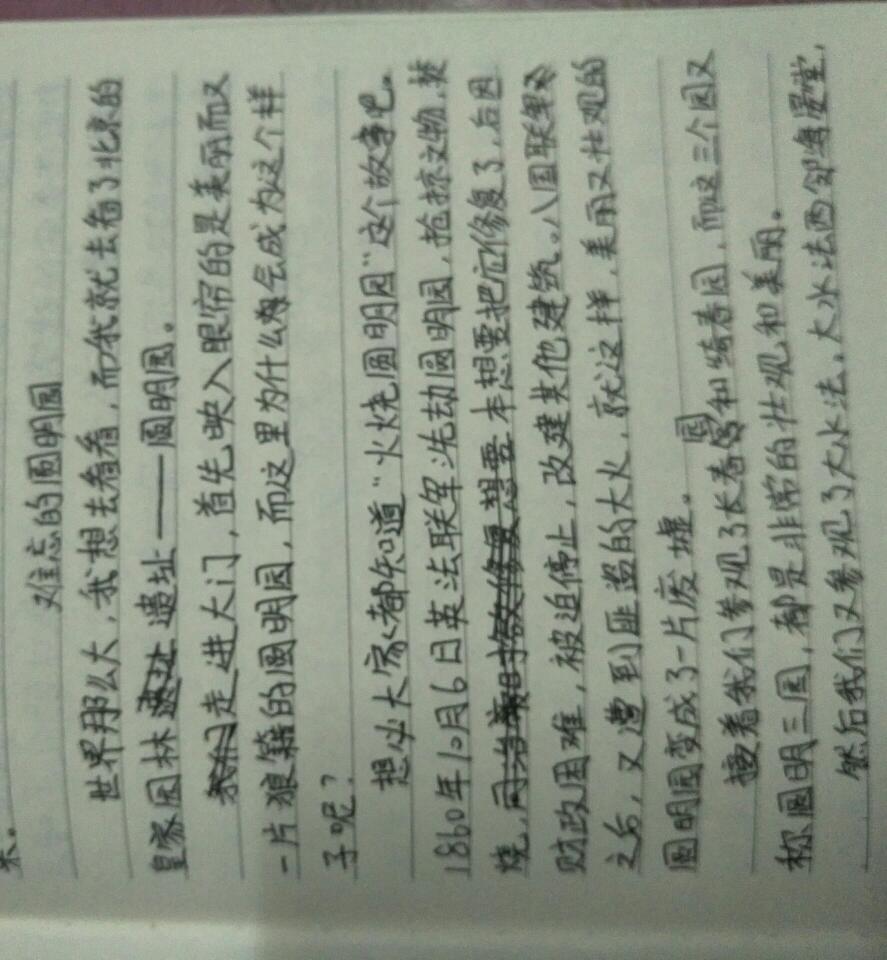 来。
难忘的圆明园
世界那么大，我想去看看，而我就去看了北京的
皇家园林遗址——圆明园。
走进大门，首先映入眼帘的是美丽而又
一片狼籍的圆明园，而这里为什么会成为这个样
子呢？
想必大家都知道“火烧圆明园”这个故事吧。
1860年10月6日英法联军洗劫圆明园，抢掠文物，焚
烧，同治本想要把它修复了，后因
财政困难，被迫停止，改建其他建筑。八国联军
之后，又遭到匪盗的大火，就这样，美丽又壮观的
圆明园变成了一片废墟。
接着我们参观了长春园和绮春园，而这三个园又
称圆明三园，都是非常的壮观和美丽。
然后我们又参观了大水法，大水法西邻海晏堂，